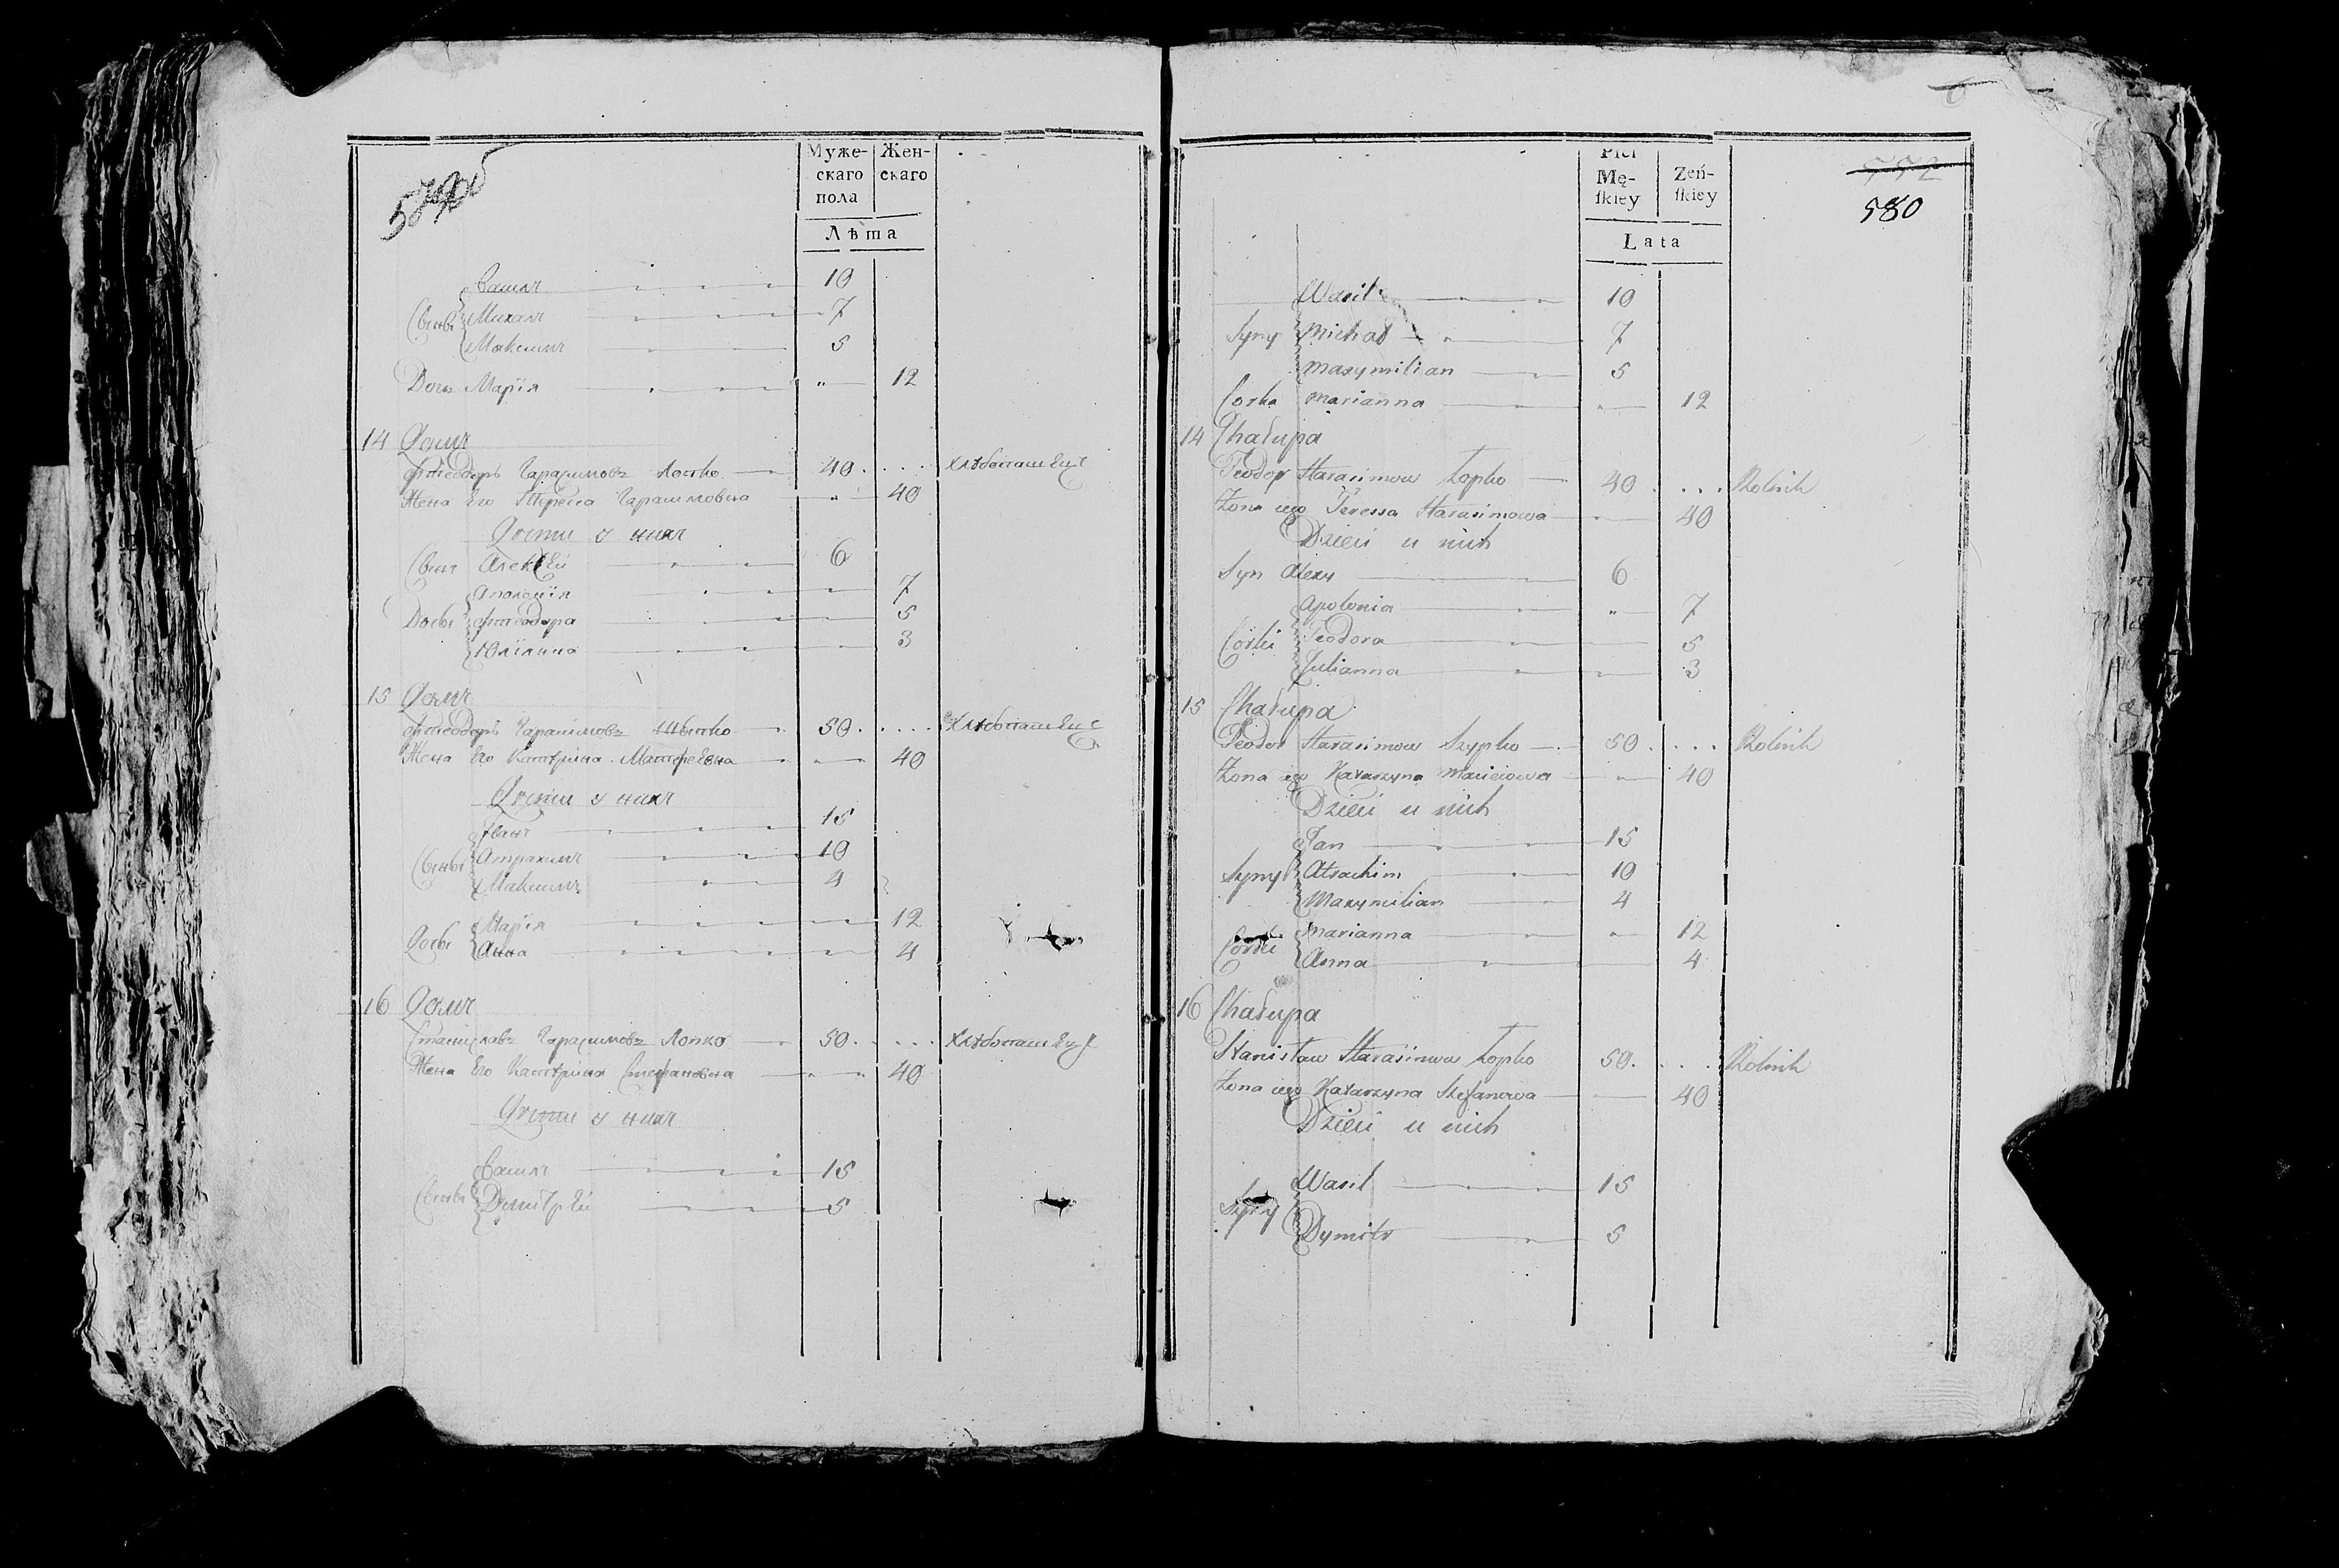 Муже-
скаго
пола
Жен-
скаго
Лѣта
Василъ 10
Сыны Михалъ 7
Максимъ 5
Дочь Марїя " 12
14 Домъ
Гарасимовъ Лопко 40 .... хлѣбопашецъ
Жена Его Тереса Гарасимовна " 40
Дѣти у нихъ
Сынъ Алексѣй 6
Аполонїя 7
5
Юлїянна 3
15 Домъ
Гарасимовъ Шыпко 50 .... хлѣбопашецъ
Жена Его Катерина 40
Дѣти у нихъ
Иванъ 15
Сыны Атрахимъ 10
Максимъ 4
Марїя 12
Анна 4
16 Домъ
Станиславъ Гарасимовъ Лопко 50 .... хлѣбопашецъ
Жена Его Катерина Стефановна 40
Дѣти у нихъ
Василъ 15
Сыны Димитрѣй 5
Płci
Mę-
skiey
Żeń-
skiey
Lata
580
Wasil 10
Syny Michał 7
Maxymilian 5
Corka Marianna 12
14 Chałupa
Teodor Harasimow Łopko 40 .... Rolnik
Żona iego Teressa Harasimowa 40
Dzieci u nich
Syn Alexy 6
Apolonia " 7
Corki Teodora 5
Julianna 3
15 Chałupa
Teodor Harasimow Szypko 50 .... Rolnik
Żona iego Katarzyna Macieiowa " 40
Dzieci u nich
Jan 15
Syny Atrachim 10
Maxymilian 4
Marianna " 12
Corki Anna 4
16 Chałupa
Stanisław Harasimow Łopko 50 .... Rolnik
Żona iego Katarzyna Stefanowa 40
Dzieci u nich
Wasil 15
Syny
Dymitr 5